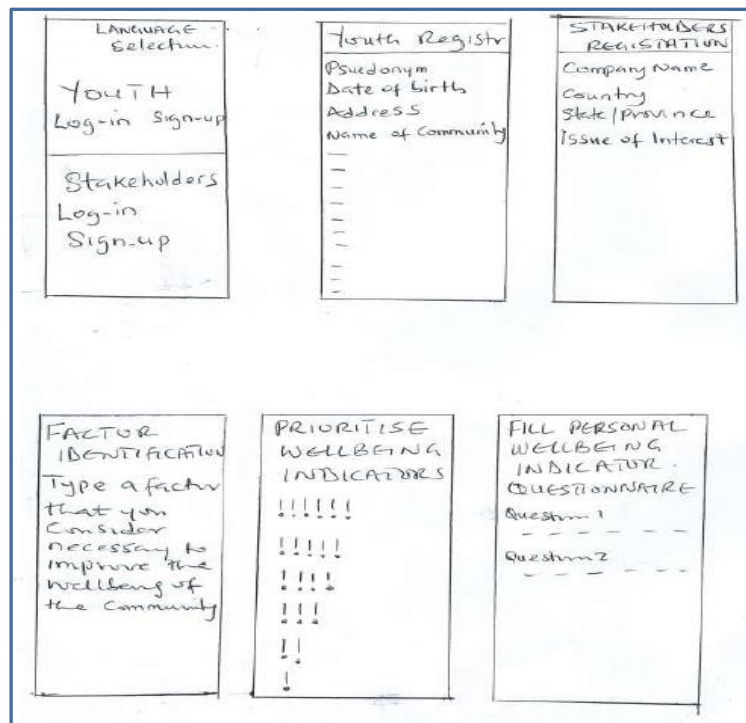 LANGUAGE
Selection.
YOUTH
Log-in Sign-up
Stakeholders
Log-in
Sign-up
Youth Registr
Psuedonym
Date of birth
Address
Name of Community
STAKEHOLDERS
REGISTATION
Company Name
Country
State/Province
Issue of Interest
FACTOR
IDENTIFICATION
Type a factor
that you
Consider
necessary to
improve the
wellbeing of
the Community
PRIORITISE
WELLBEING
INDICATORS
!!!!!!
!!!!!
!!!!
!!!
!!
!
FILL PERSONAL
WELLBEING
INDICATOR.
QUESTIONNAIRE
Question 1
Question 2